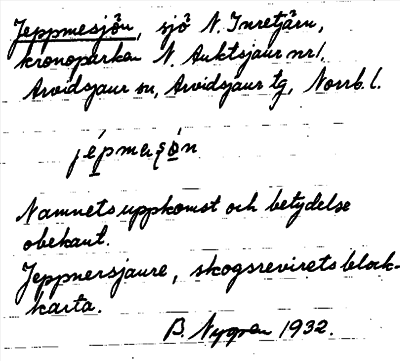 Jeppmesjön, sjö N. Inretjärn,
kronoparken N. Auktsjaur nr 1.
Arvidsjaur sn, Arvidsjaur tg, Norrb. l.
jépmaşön
Namnets uppkomst och betydelse
obekant.
Jeppnersjaure, skogsrevirets block-
karta.
B Nygren 1932.